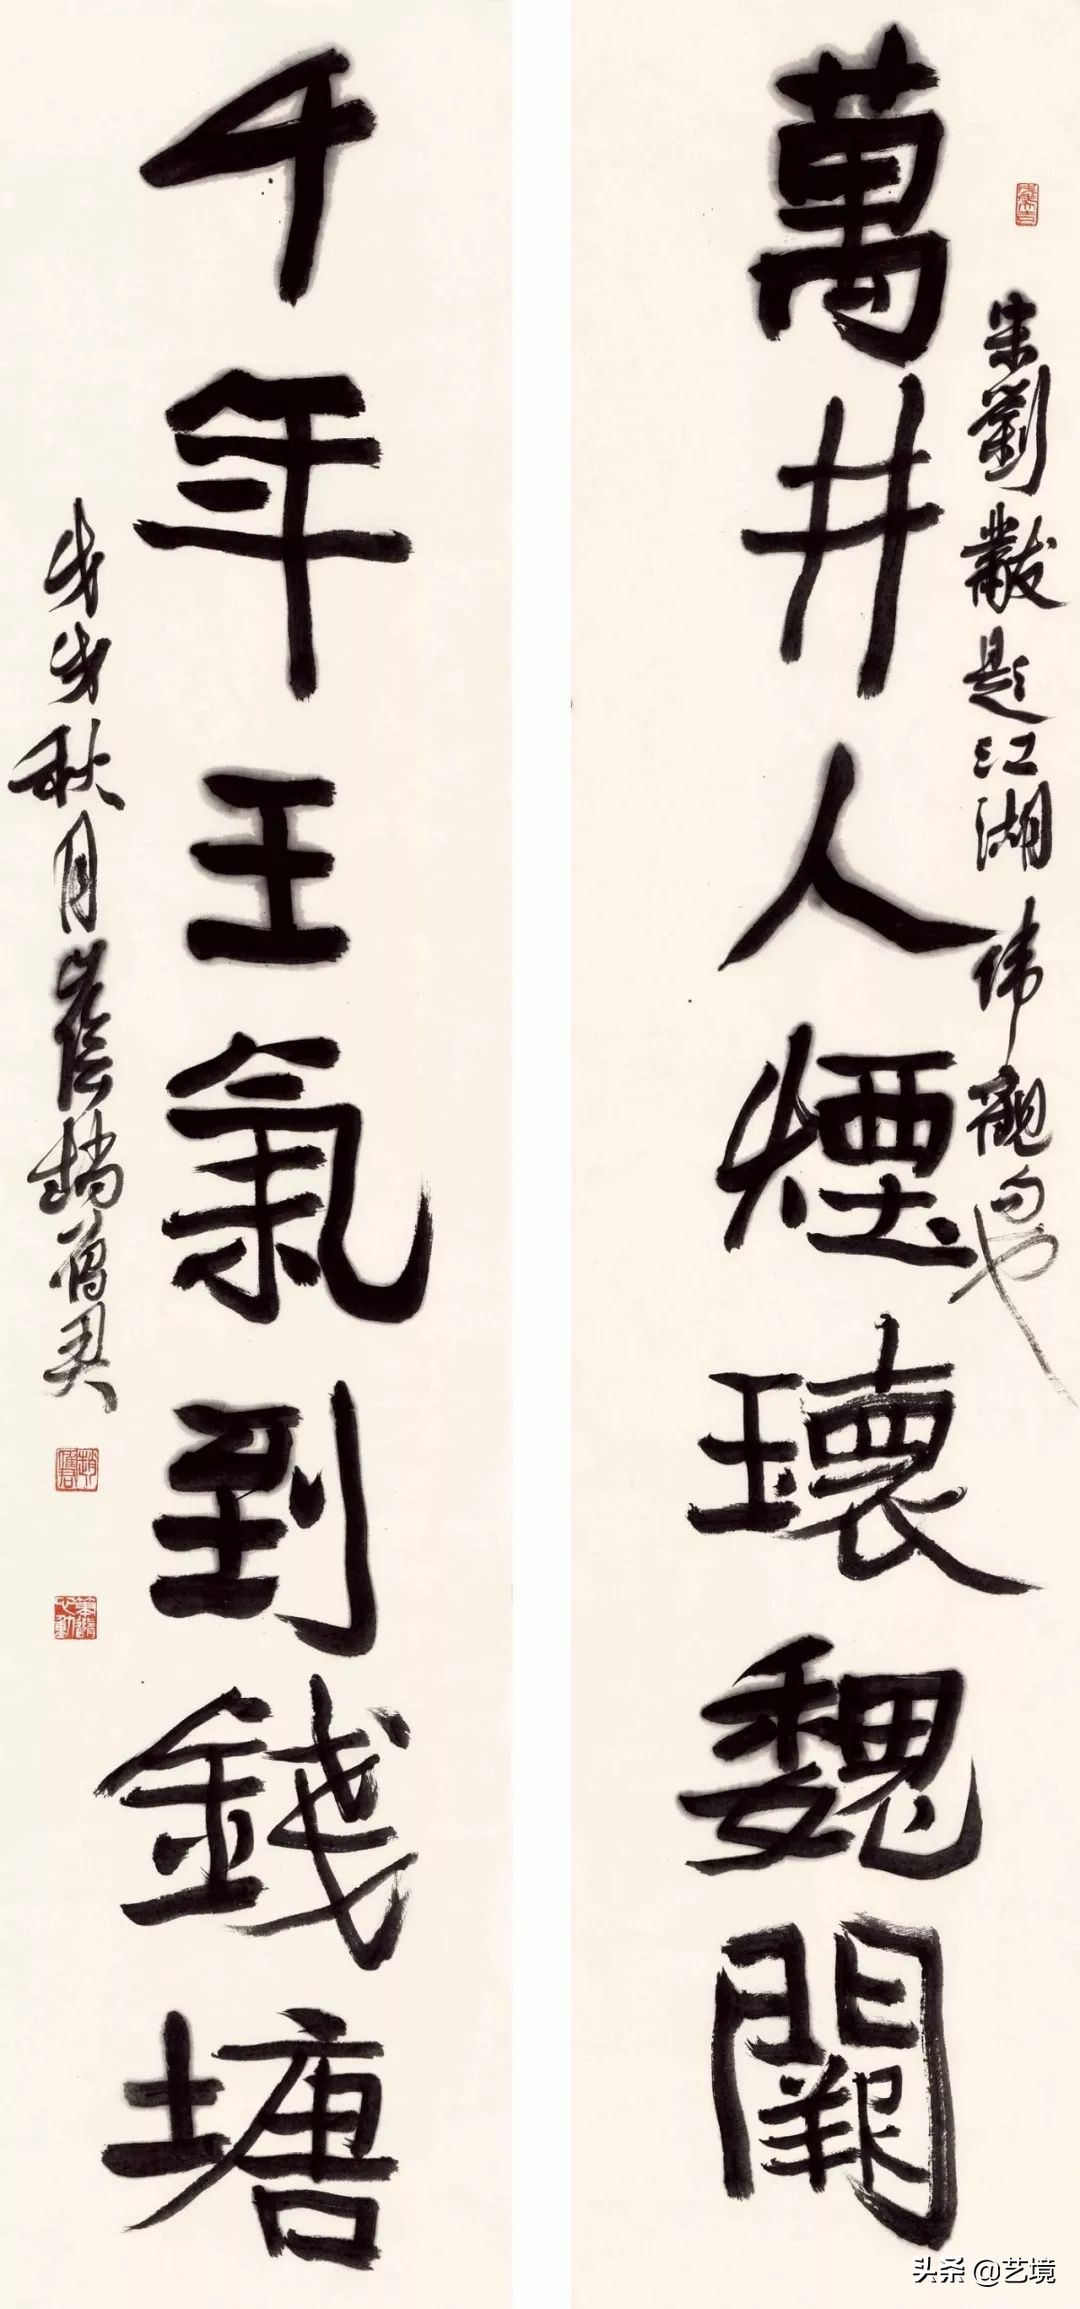 萬井人煙環魏闕
宋劉黻題江湖偉觀句也
千年王氣到錢塘
戊戌秋月山陰趙雁君
头条 @艺境